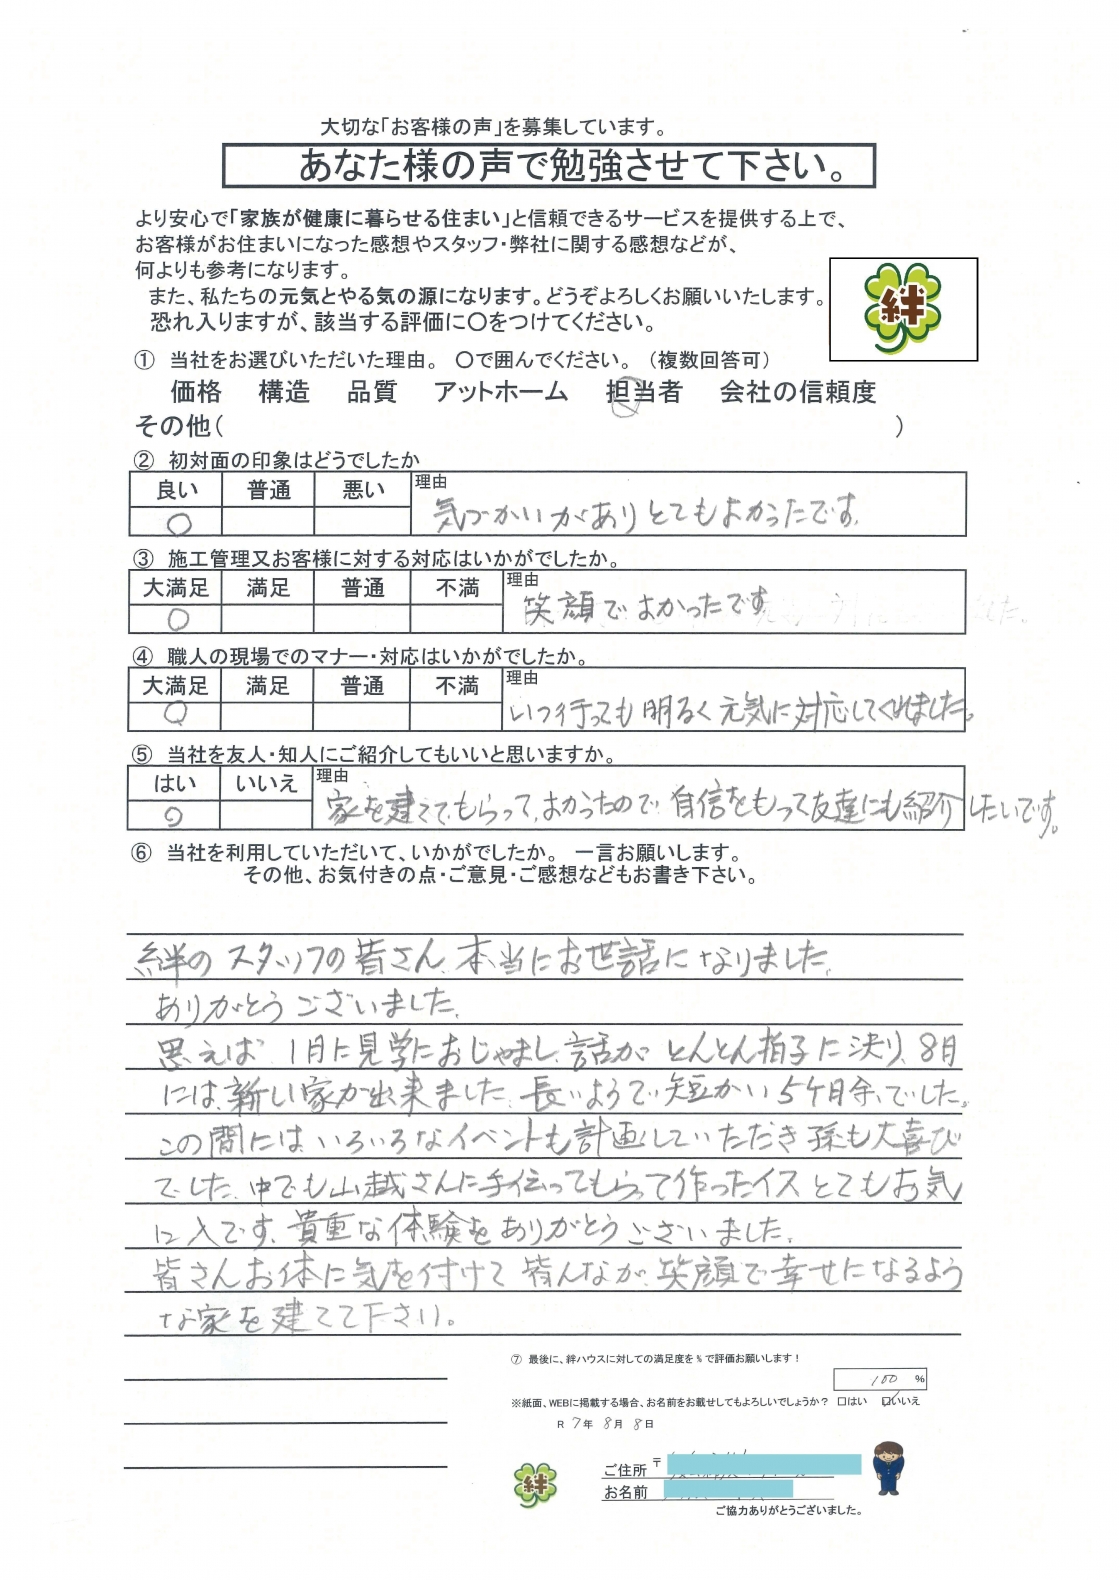 大切な「お客様の声」を募集しています。
あなた様の声で勉強させて下さい。
より安心で「家族が健康に暮らせる住まい」と信頼できるサービスを提供する上で、
お客様がお住まいになった感想やスタッフ・弊社に関する感想などが、
何よりも参考になります。
また、私たちの元気とやる気の源になります。どうぞよろしくお願いいたします。
恐れ入りますが、該当する評価に〇をつけてください。
絆
① 当社をお選びいただいた理由。 〇で囲んでください。 （複数回答可）
価格 構造 品質 アットホーム 担当者 会社の信頼度
その他（ ）
② 初対面の印象はどうでしたか
良い 普通 悪い 理由
〇 気づかいがありとてもよかったです。
③ 施工管理又お客様に対する対応はいかがでしたか。
大満足 満足 普通 不満 理由
〇 笑顔でよかったです
④ 職人の現場でのマナー・対応はいかがでしたか。
大満足 満足 普通 不満 理由
〇 いつ行っても明るく元気に対応してくれました。
⑤ 当社を友人・知人にご紹介してもいいと思いますか。
はい いいえ 理由
〇 家を建ててもらって、よかったので自信をもって友達にも紹介したいです。
⑥ 当社を利用していただいて、いかがでしたか。 一言お願いします。
その他、お気付きの点・ご意見・ご感想などもお書き下さい。
絆のスタッフの皆さん、本当にお世話になりました。
ありがとうございました。
思えば 1月に見学におじゃまし、話がとんとん拍子に決り、8月
には、新しい家が出来ました。長いようで短かい5ケ月余、でした。
この間には、いろいろなイベントも計画していただき孫も大喜び
でした。中でも山越さんに手伝ってもらって作ったイスとてもお気
に入です。貴重な体験をありがとうございました。
皆さんお体に気を付けて皆んなが、笑顔で幸せになるよう
な家を建てて下さい。
⑦ 最後に、絆ハウスに対しての満足度を％で評価お願いします！
100 %
※紙面、WEBに掲載する場合、お名前をお載せしてもよろしいでしょうか？ □はい ☑いいえ
R 7年 8月 8日
絆
ご住所 〒
お名前
ご協力ありがとうございました。